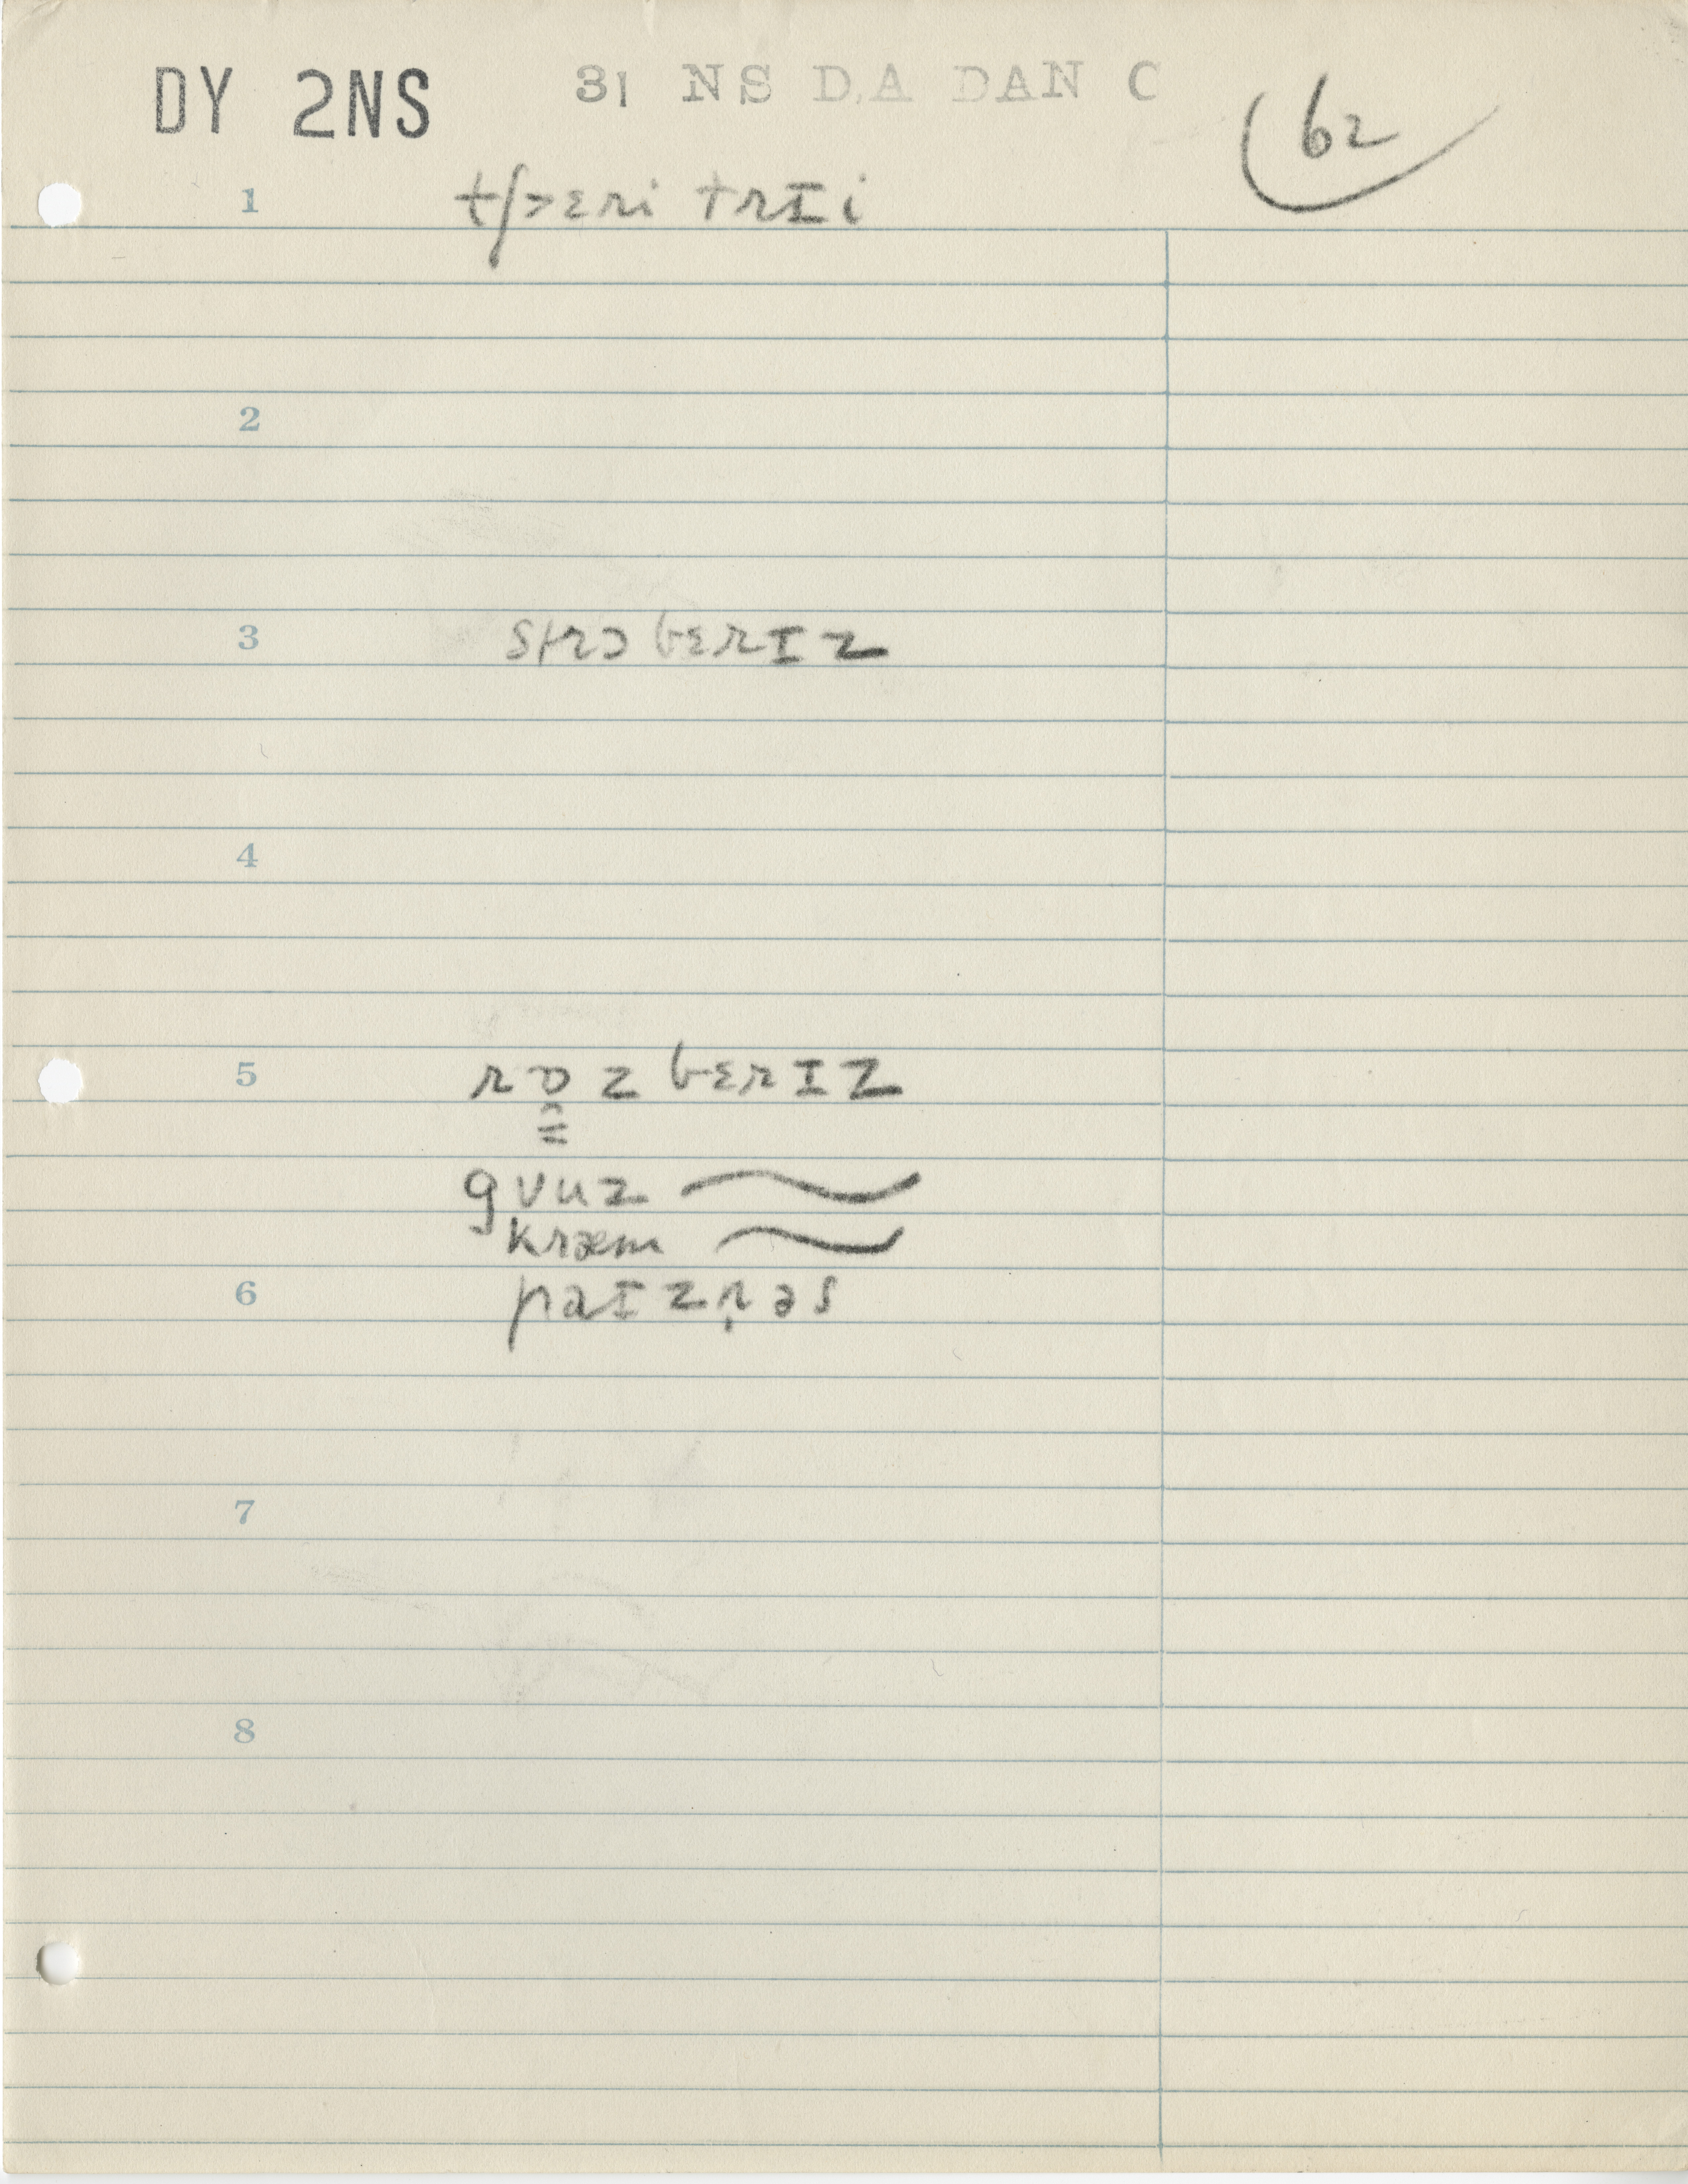 DY 2NS 31 NS DA DAN C 62
1 tʃ>ɛri trɪi
2
3 strɔbɛrɪz
4
5 rɒzbɛrɪz
guuz ~
kræm ~
6 paɪznəs
7
8